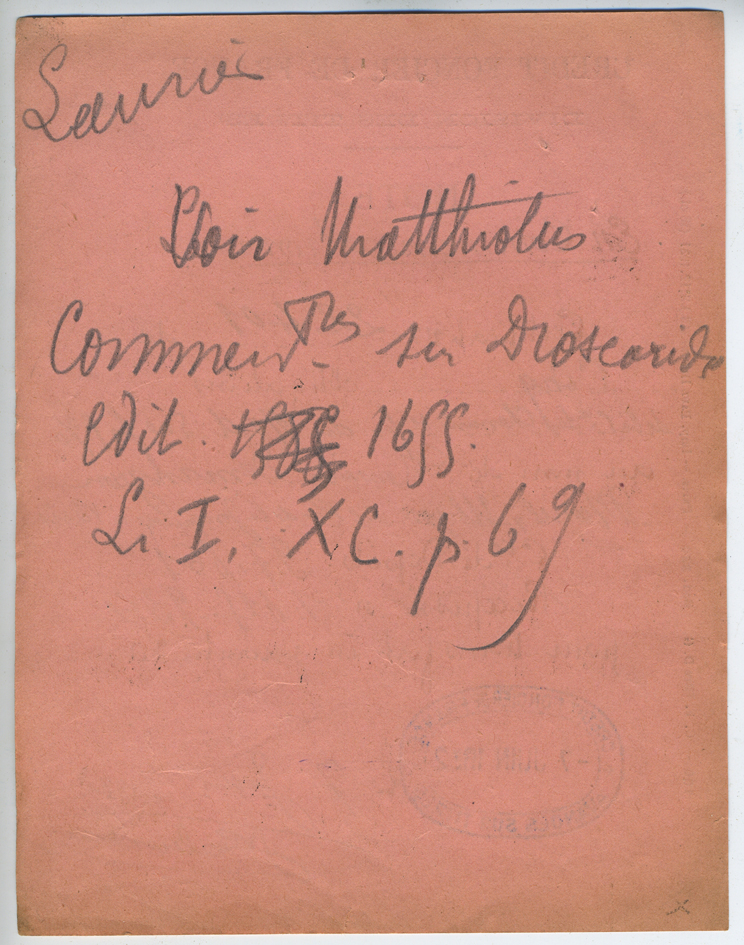 Laurier
Voir Matthiolus
Commentres sur Dioscoride
édit. 1655.
Li I. XC. p. 69